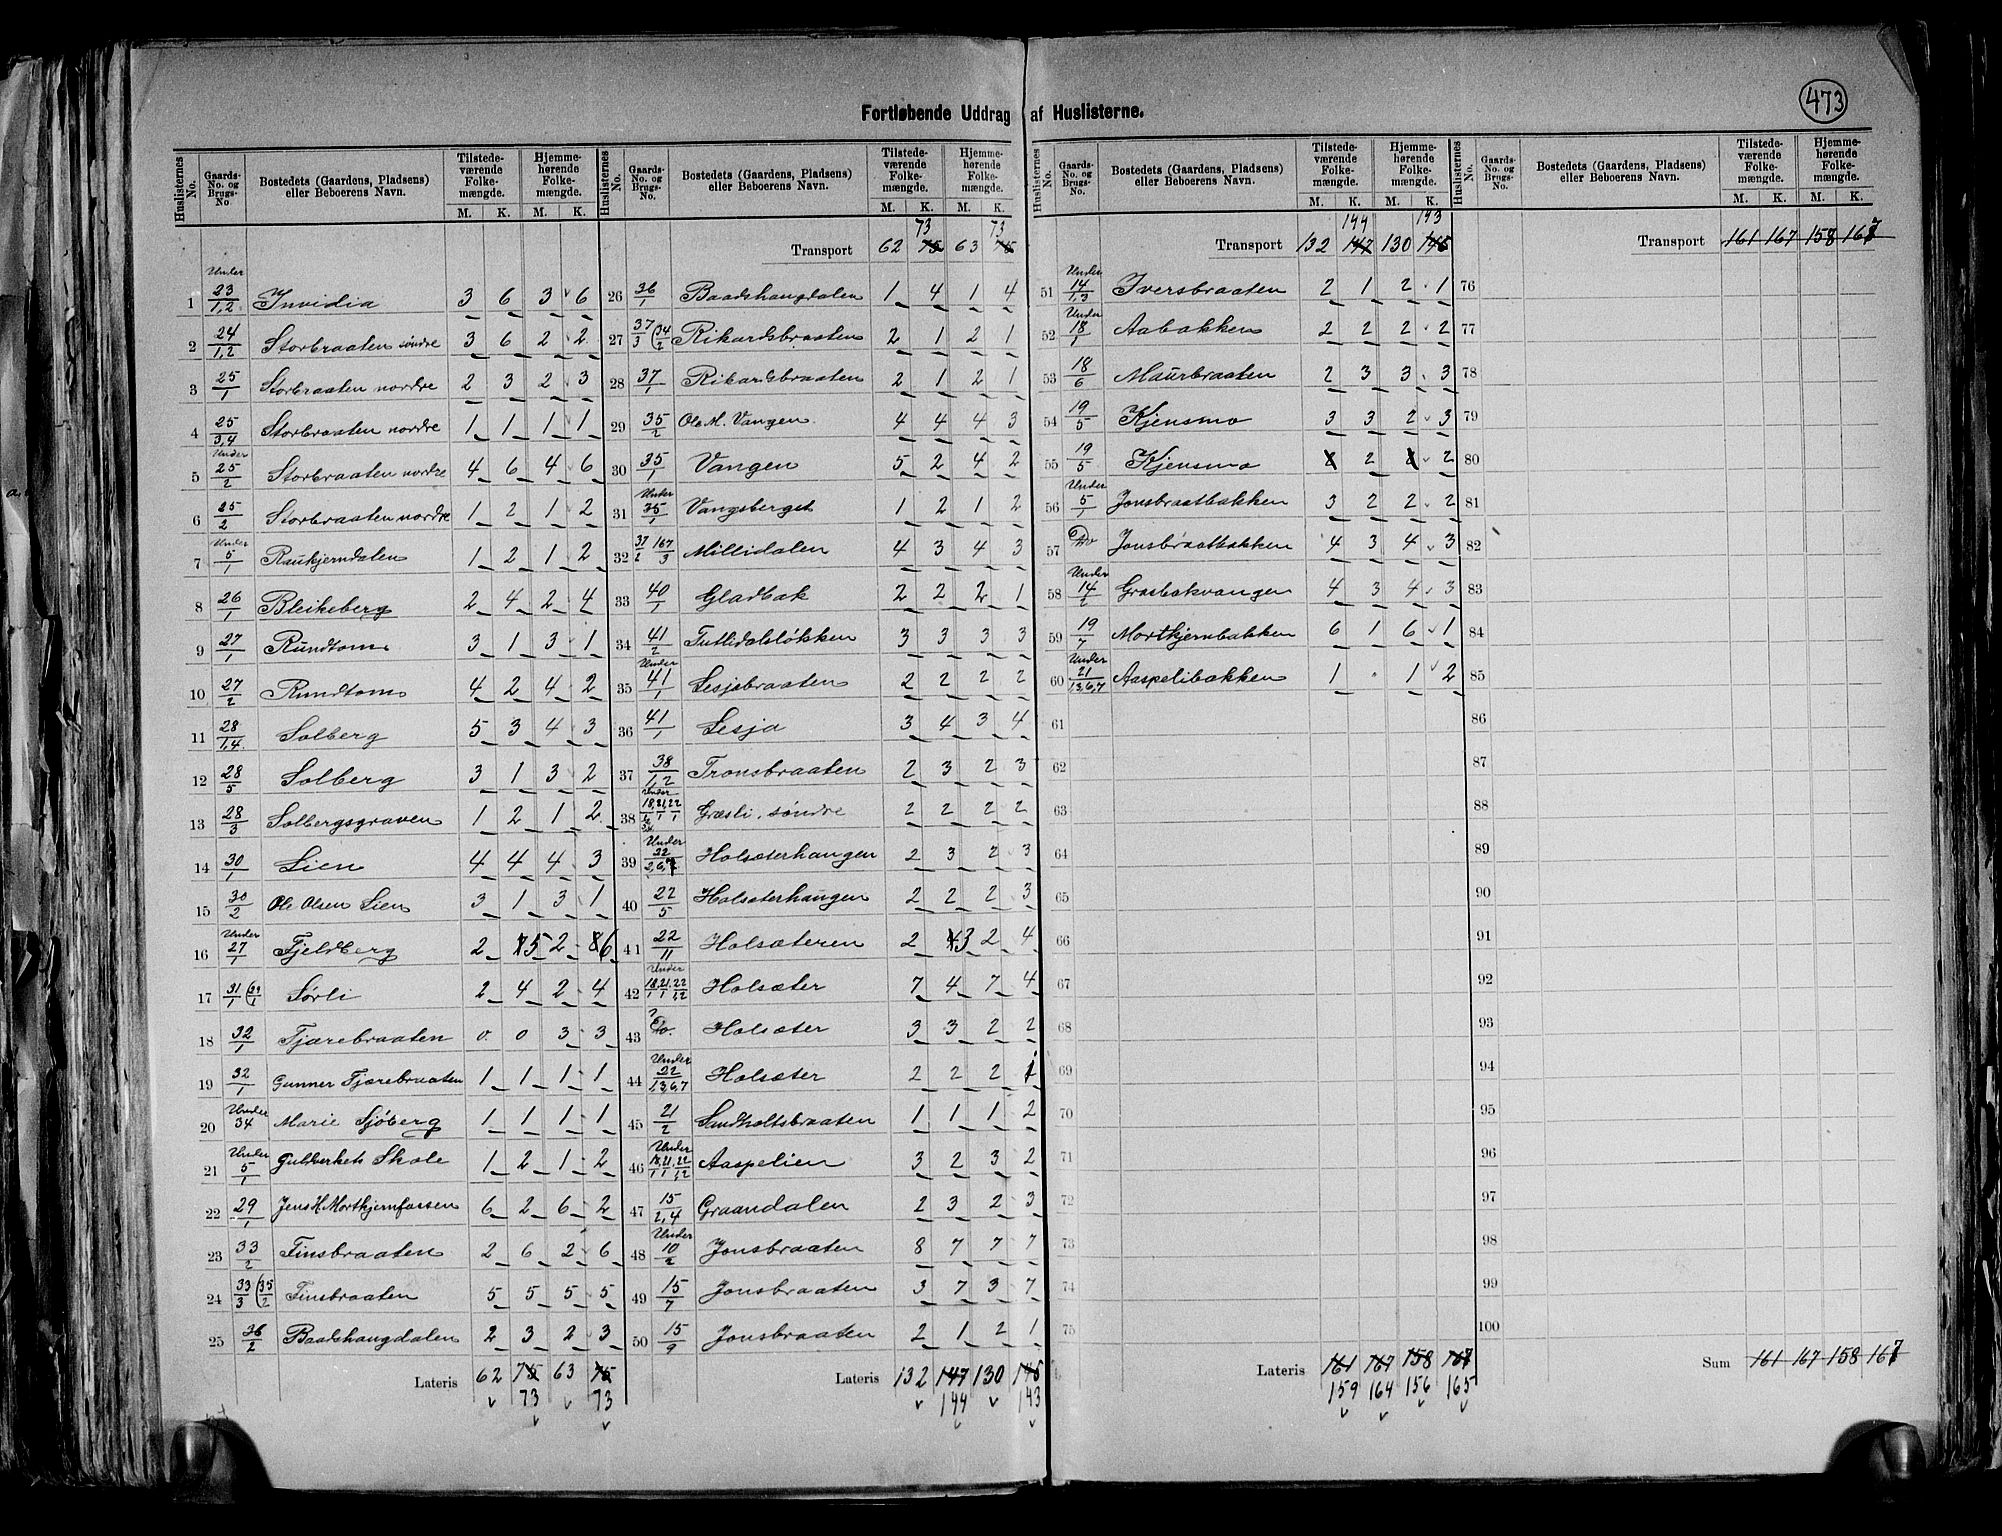 473
Fortløbende Uddrag af Huslisterne.
Huslisternes No. Gaards-No. og Brugs-No Bostedets (Gaardens, Pladsens) eller Beboerens Navn. Tilstedeværende Folkemængde. M. K. Hjemmehørende Folkemængde. M. K.
1 Under 23/1,2 Invidia 3 6 3 6
2 24/1,2 Storbraaten søndre 3 6 2 2
3 25/1 Storbraaten nordre 2 3 2 3
4 25/3,4 Storbraaten nordre 1 1 1 1
5 Under 25/2 Storbraaten nordre 4 6 4 6
6 25/2 Storbraaten nordre 1 2 1 2
7 Under 5/1 Raukjerndalen 1 2 1 2
8 26/1 Bleikeberg 2 4 2 4
9 27/1 Rundtom 3 1 3 1
10 27/2 Rundtom 4 2 4 2
11 28/1,4 Solberg 5 3 4 3
12 28/5 Solberg 3 1 3 2
13 28/3 Solbergsgraven 1 2 1 2
14 30/1 Lien 4 4 4 3
15 30/2 Ole Olsen Lien 3 1 3 1
16 Under 27/1 Fjeldberg 2 5 2 6
17 31/1 Sørli 2 4 2 4
18 32/1 Tjærebraaten 0 0 3 3
19 32/1 Gunner Tjærebraaten 1 1 1 1
20 Under 34 Marie Sjøberg 1 1 1 1
21 Under 5/1 Guldverkets Skole 1 2 1 2
22 29/1 Jens H. Mortkjernfossen 6 2 6 2
23 33/2 Finsbraaten 2 6 2 6
24 33/3 (35/2 Finsbraaten 5 5 5 5
25 36/2 Baadshaugdalen 2 3 2 3
Lateris 62 75 63 75
73 73
Huslisternes No. Gaards-No. og Brugs-No. Bostedets (Gaardens, Pladsens) eller Beboerens Navn. Tilstedeværende Folkemængde. M. K. Hjemmehørende Folkemængde. M. K.
73 73
Transport 62 75 63 75
26 36/1 Baadshaugdalen 1 4 1 4
27 37/3 (34/2 Rikardsbraaten 2 1 2 1
28 37/1 Rikardsbraaten 2 1 2 1
29 35/2 Ole M. Vangen 4 4 4 3
30 35/1 Vangen 5 2 4 2
31 Under 35/1 Vangsberget 1 2 1 2
32 37/2 167/3 Millidalen 4 3 4 3
33 40/1 Gladbak 2 2 2 1
34 41/2 Tutlidalsløkken 3 3 3 3
35 Under 41/1 Lesjobraaten 2 2 2 2
36 41/1 Lesja 3 4 3 4
37 38/1,2 Tronsbraaten 2 3 2 3
38 Under 18,21,22 Græsli søndre 2 2 2 2
39 Under 22/2,6,7 Holsæterhaugen 2 3 2 3
40 22/5 Holsæterhaugen 2 2 2 3
41 22/11 Holsæteren 2 3 2 4
42 Under 18/1 21/1 22/1,2 Holsæter 7 4 7 4
43 Do. Holsæter 3 3 2 2
44 Under 22/1,3,6,7 Holsæter 2 2 2 1
45 21/2 Sundholtsbraaten 1 1 1 2
46 Under 18/1 21/1 22/1,2 Aaspelien 3 2 3 2
47 15/2,4 Graandalen 2 3 2 3
48 Under 10/2 Jonsbraaten 8 7 7 7
49 15/7 Jonsbraaten 3 7 3 7
50 15/9 Jonsbraaten 2 1 2 1
Lateris 132 147 130 145
144 143
Huslisternes No. Gaards-No. og Brugs-No. Bostedets (Gaardens, Pladsens) eller Beboerens Navn. Tilstedeværende Folkemængde. M. K. Hjemmehørende Folkemængde. M. K.
144 143
Transport 132 147 130 145
51 Under 14/1,3 Iversbraaten 2 1 2 1
52 Under 18/1 Aabakken 2 2 2 2
53 18/6 Maurbraaten 2 3 3 3
54 19/5 Kjensmo 3 3 2 3
55 19/5 Kjensmo 2 2
56 Under 5/1 Jonsbraatbakken 3 2 2 2
57 Do Jonsbraatbakken 4 3 4 3
58 Under 14/2 Græsbakvangen 4 3 4 3
59 19/7 Mortkjernbakken 6 1 6 1
60 Under 21/1,3,6,7 Aaspelibakken 1 1 2
61
62
63
64
65
66
67
68
69
70
71
72
73
74
75
Lateris 161 167 158 167
159 164 156 165
Huslisternes No. Gaards-No. og Brugs-No. Bostedets (Gaardens, Pladsens) eller Beboerens Navn. Tilstedeværende Folkemængde. M. K. Hjemmehørende Folkemængde. M. K.
Transport 161 167 158 167
76
77
78
79
80
81
82
83
84
85
86
87
88
89
90
91
92
93
94
95
96
97
98
99
100
Sum 161 167 158 167